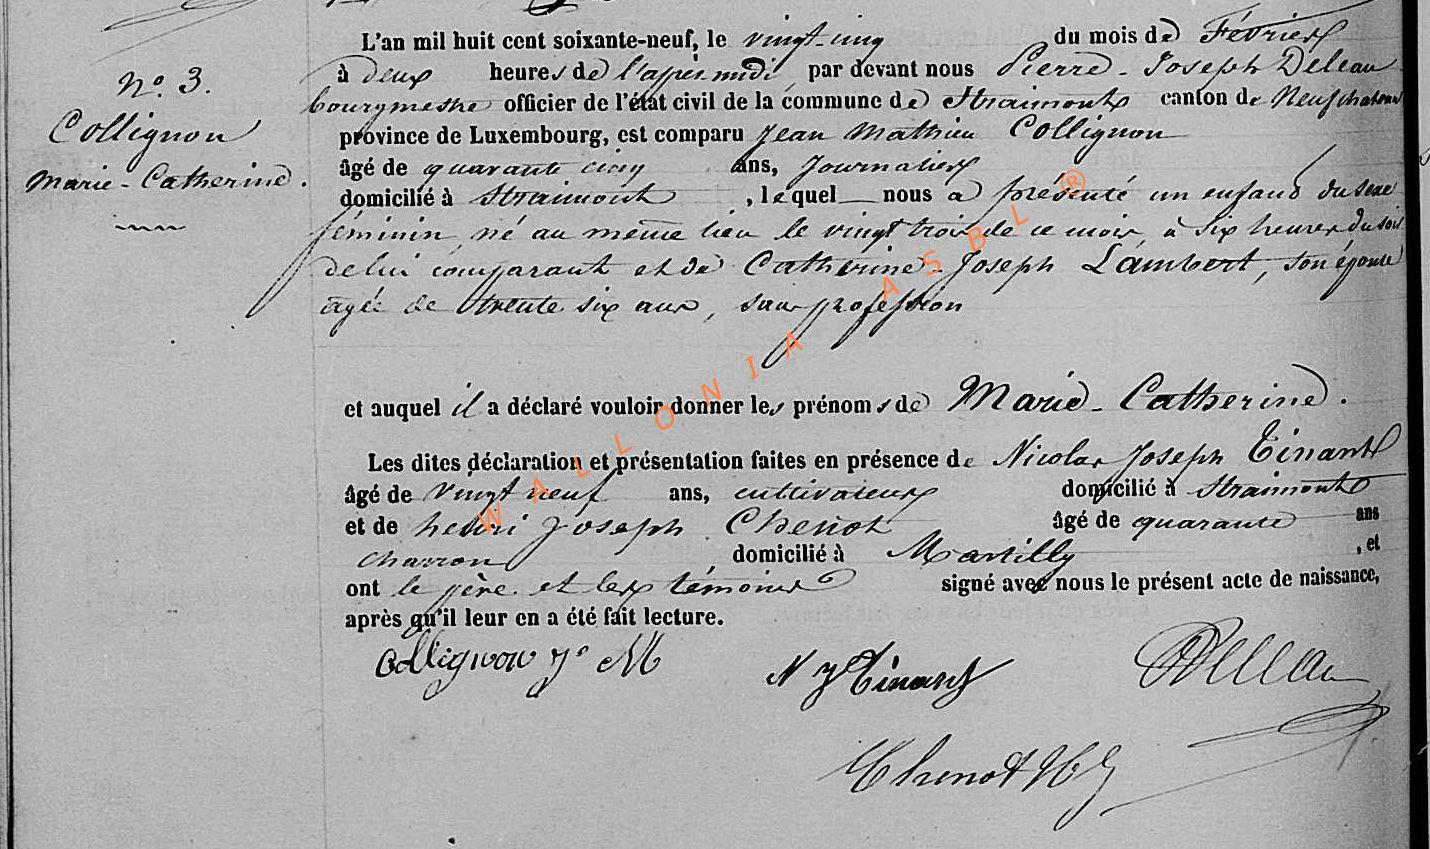 L'an mil huit cent soixante-neuf, le vingt-cinq du mois de Février
à deux heures de l'après-midi, par devant nous Pierre-Joseph Deleau
bourgmestre officier de l'état civil de la commune de Straimont canton de Neufchateau
province de Luxembourg, est comparu Jean Mathieu Collignon
âgé de quarante cinq ans, Journalier
domicilié à Straimont, lequel nous a présenté un enfant du sexe
féminin, né au même lieu le vingt trois de ce mois, à six heures du soir
de lui comparant et de Catherine-Joseph Lambert, son épouse
agée de trente six ans, sans profession
et auquel il a déclaré vouloir donner les prénoms de Marie-Catherine.
Les dites déclaration et présentation faites en présence de Nicolas Joseph Tinant
âgé de vingt neuf ans, cultivateur domicilié à Straimont
et de henri Joseph Chenot âgé de quarante ans
charron domicilié à Martilly, et
ont le père et les témoins signé avec nous le présent acte de naissance,
après qu'il leur en a été fait lecture.
Collignon Jn M
N J Tinant
Deleau
Chenot H J
No. 3.
Collignon
Marie-Catherine.
WALLONIA ASBL ®